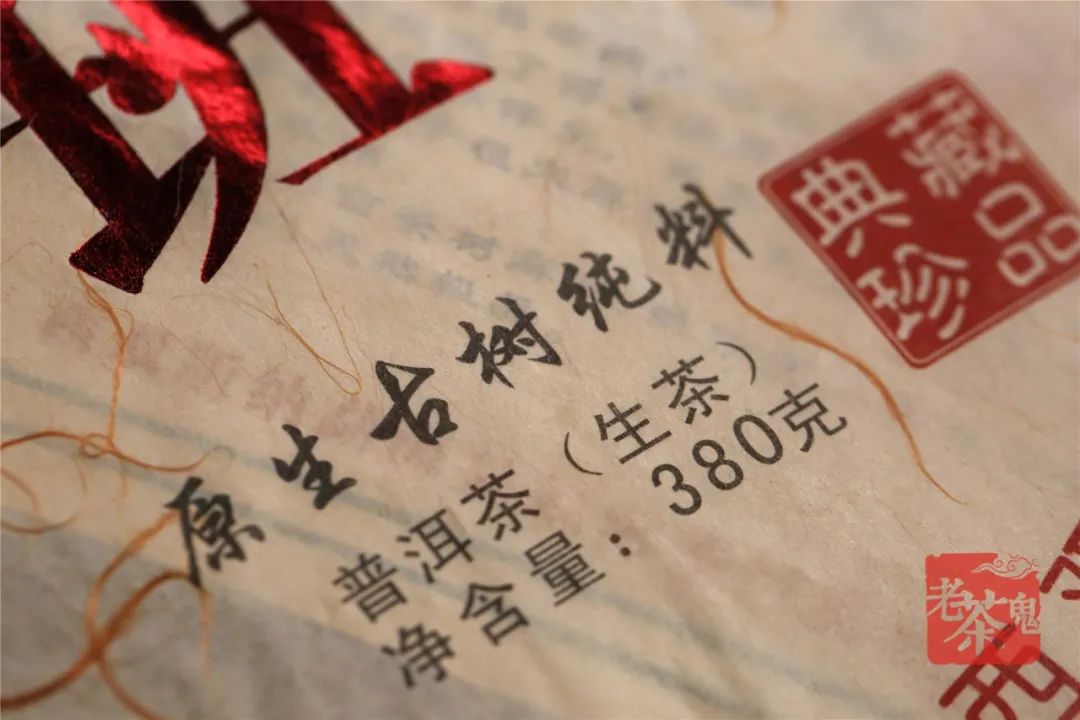 班
原生古树纯料
普洱茶（生茶）
净含量：380克
典藏
珍品
老茶鬼